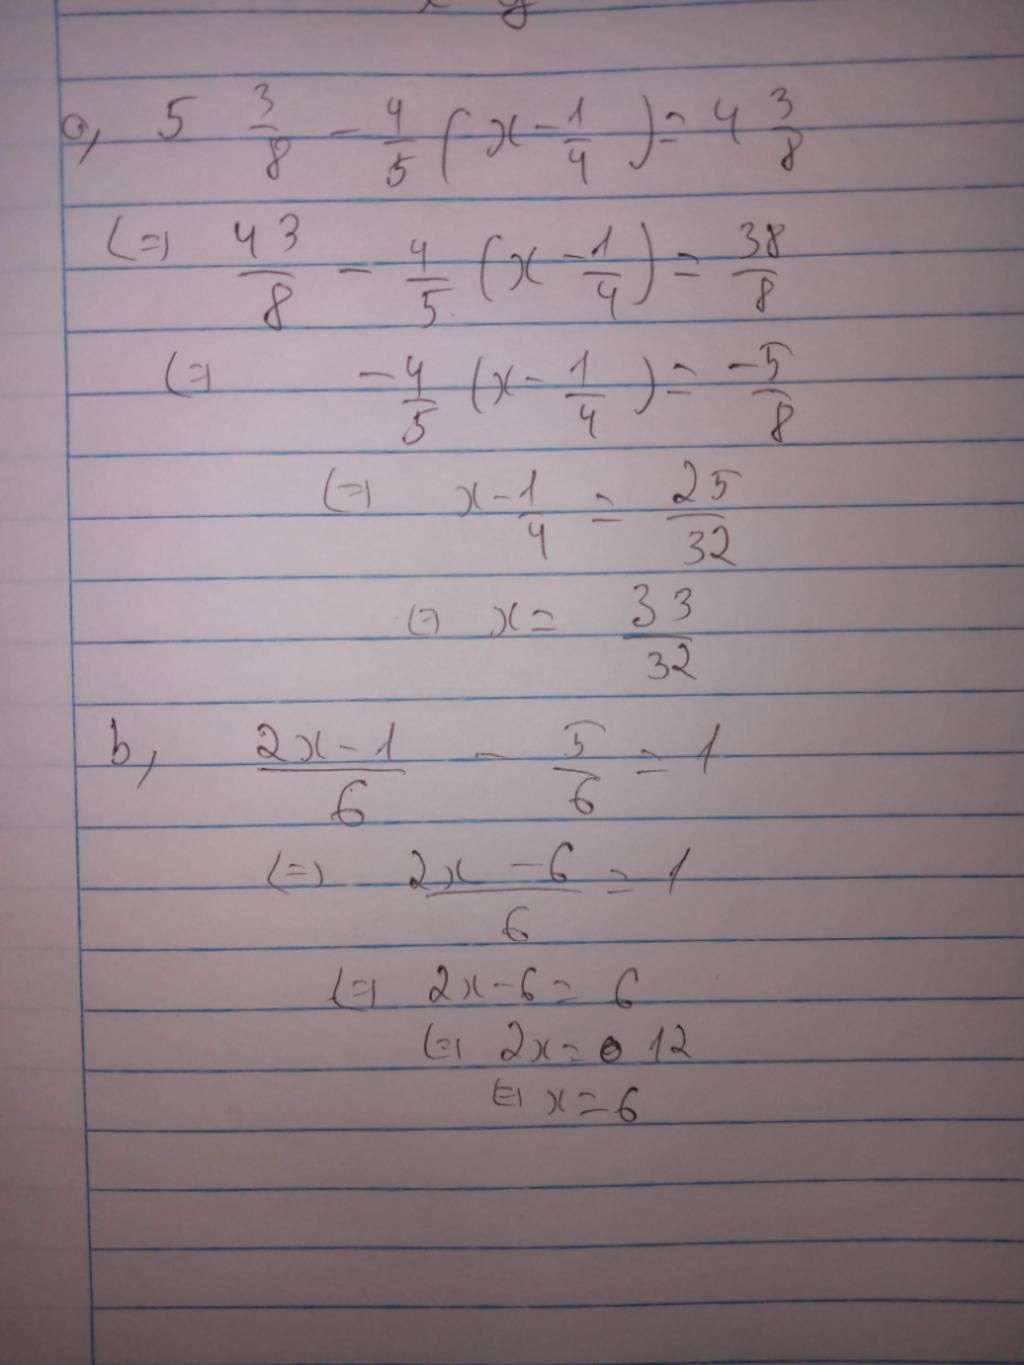 a, 5 3/8 - 4/5 (x - 1/4) = 4 3/8
(=) 43/8 - 4/5 (x - 1/4) = 38/8
(=) -4/5 (x - 1/4) = -5/8
(=) x - 1/4 = 25/32
(=) x = 33/32
b, 2x - 1/6 - 5/6 = 1
(=) 2x - 6/6 = 1
(=) 2x - 6 = 6
(=) 2x = 12
(=) x = 6